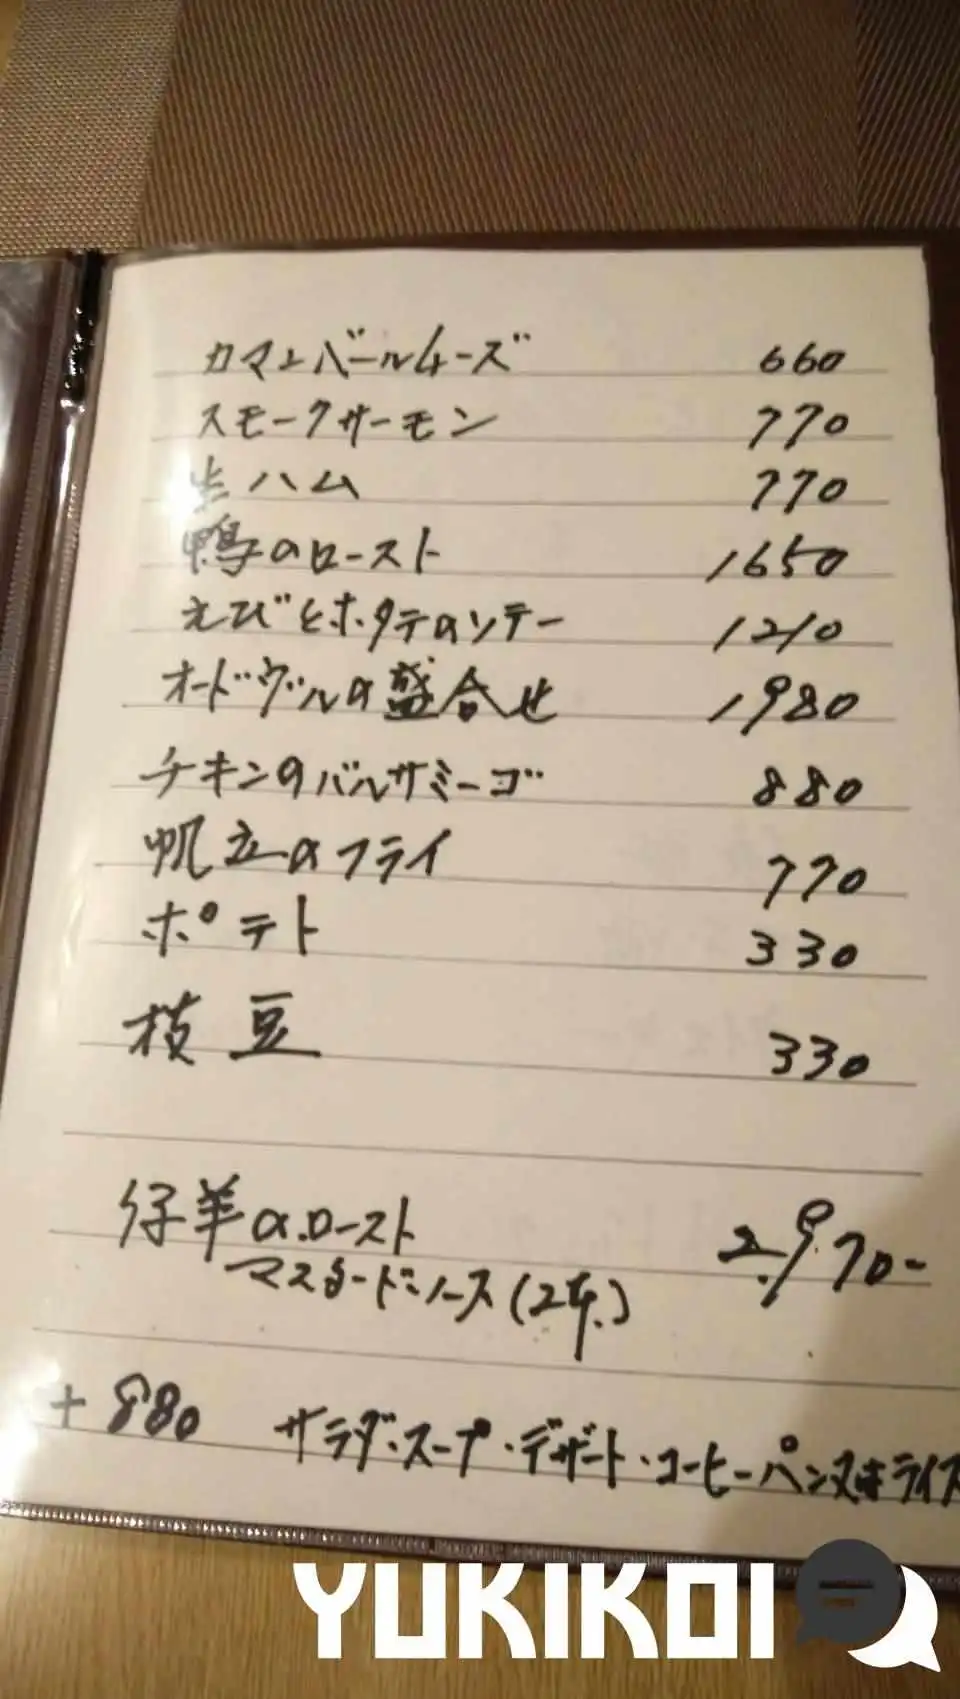 カマンベールチーズ 660
スモークサーモン 770
生ハム 770
鴨のロースト 1650
えびとホタテのソテー 1210
オードヴルの盛合せ 1980
チキンのバルサミーゴ 880
帆立のフライ 770
ポテト 330
枝豆 330
仔羊のロースト 2,970-
マスタードソース(2本)
+880 サラダ・スープ・デザート・コーヒー パン又はライス
YUKIKOI